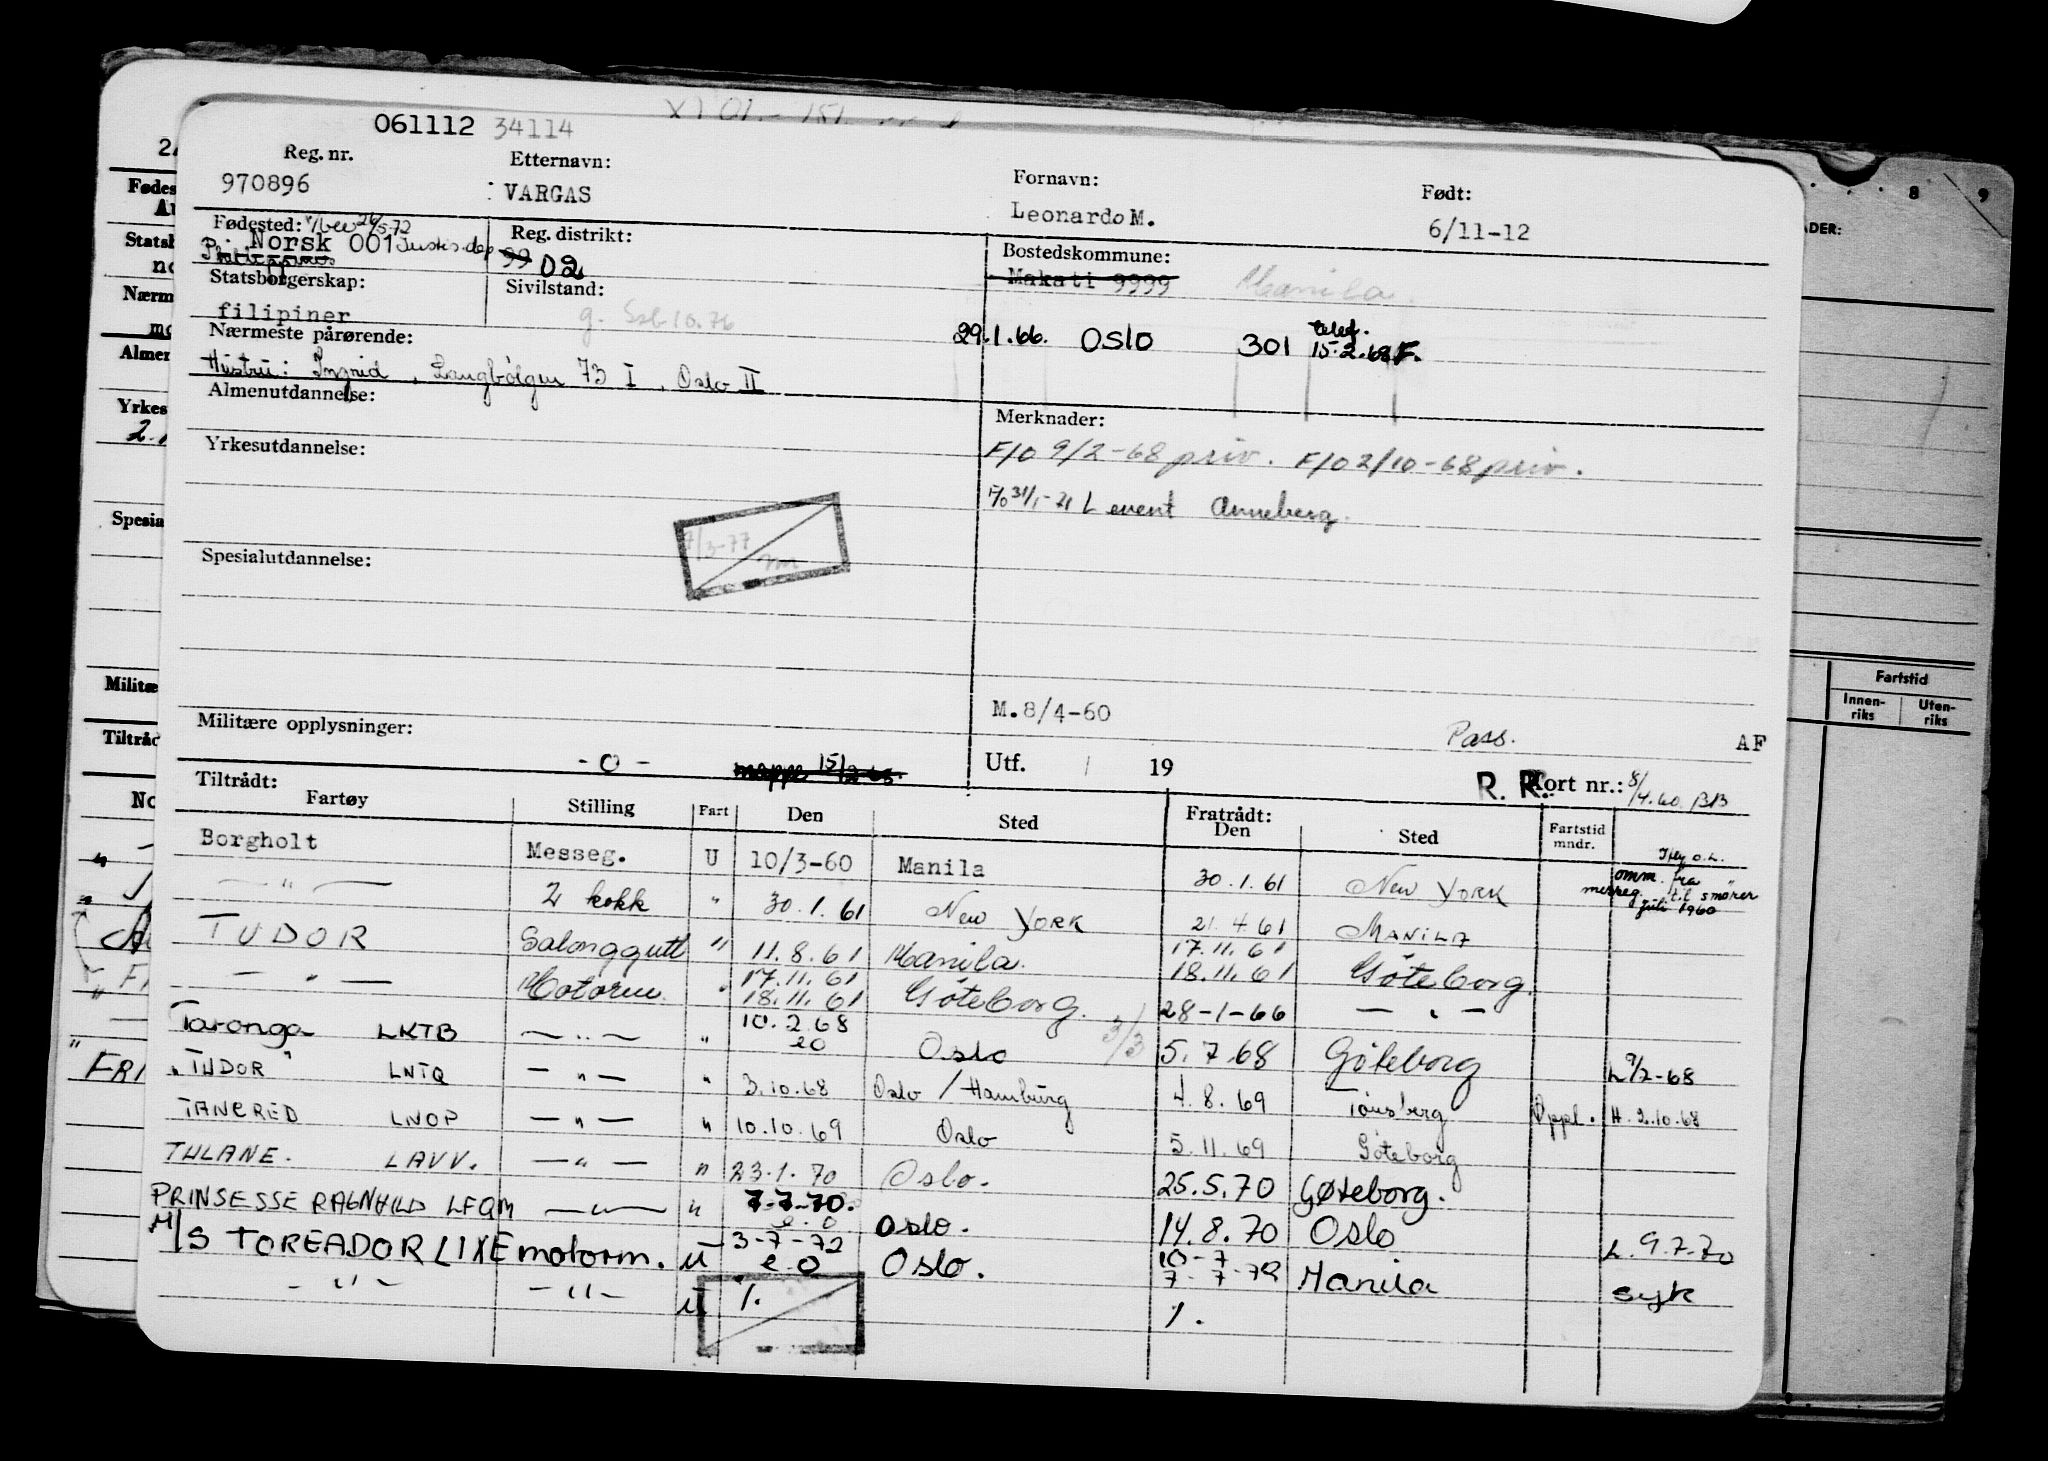 061112 34114
Reg. nr. Etternavn: Fornavn: Født:
970896 VARGAS Leonardo M. 6/11-12
Fødested: Reg. distrikt: Bostedskommune:
Norsk 001 Justis.dep 99 02 Makati 9999 Manila
Statsborgerskap: Sivilstand:
filipiner g.
29.1.66. OSLO 301 15.2.68 F.
Nærmeste pårørende:
Hustru: Ingrid, Langbølgen 73 I, Oslo II
Almenutdannelse: Merknader:
F/O 9/2-68 priv. F/O 2/10-68 priv.
Yrkesutdannelse:
L event Anneberg.
7/3-77
Spesialutdannelse:
M.8/4-60
Militære opplysninger: Pass. AF
- 0 - mappe 15/2-65. Utf. / 19 R. R. Kort nr.: 8/4.60. BB
Tiltrådt: Fratrådt:
Fartøy Stilling Fart Den Sted Den Sted Fartstid mndr.
Borgholt Messeg. U 10/3-60 Manila 30.1.61 New York omm. fra messeg. til smører juli 1960
— " — 2 kokk " 30.1.61 New York 21.4.61 MANILA
TUDOR Salonggutt " 11.8.61 Manila. 17.11.61 18.11.61 Göteborg.
— " — Motorm. " 17.11.61 18.11.61 Göteborg. 28-1-66 — " —
Taronga LKTB — " — " 10.2.68 eo Oslo 3/3 5.7.68 Göteborg L 9/2-68
"TUDOR" LNTQ — " — " 3.10.68 Oslo / Hamburg 4.8.69 Tönsberg Oppl. H. 2.10.68
TANCRED LNOP — " — " 10.10.69 Oslo 5.11.69 Göteborg
TULANE. LAVV. — " — " 23.1.70 Oslo. 25.5.70 Gøteborg.
PRINSESSE RAGNHILD LFQM — " — " 7-7-70. e.o Oslo. 14.8.70 Oslo L. 9.7.70
M/S TOREADOR LIXE motorm. U 3-7-72 e o Oslo. 10-7 7-7-72 Manila syk
- " - - " - U %. %.
8 9
Fartstid
Innen-riks Uten-riks